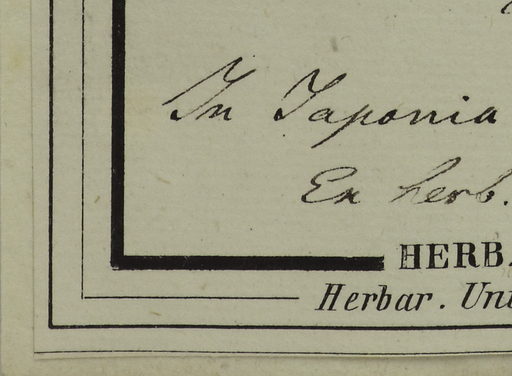 In Japonia
Ex herb.
HERB.
Herbar. Un